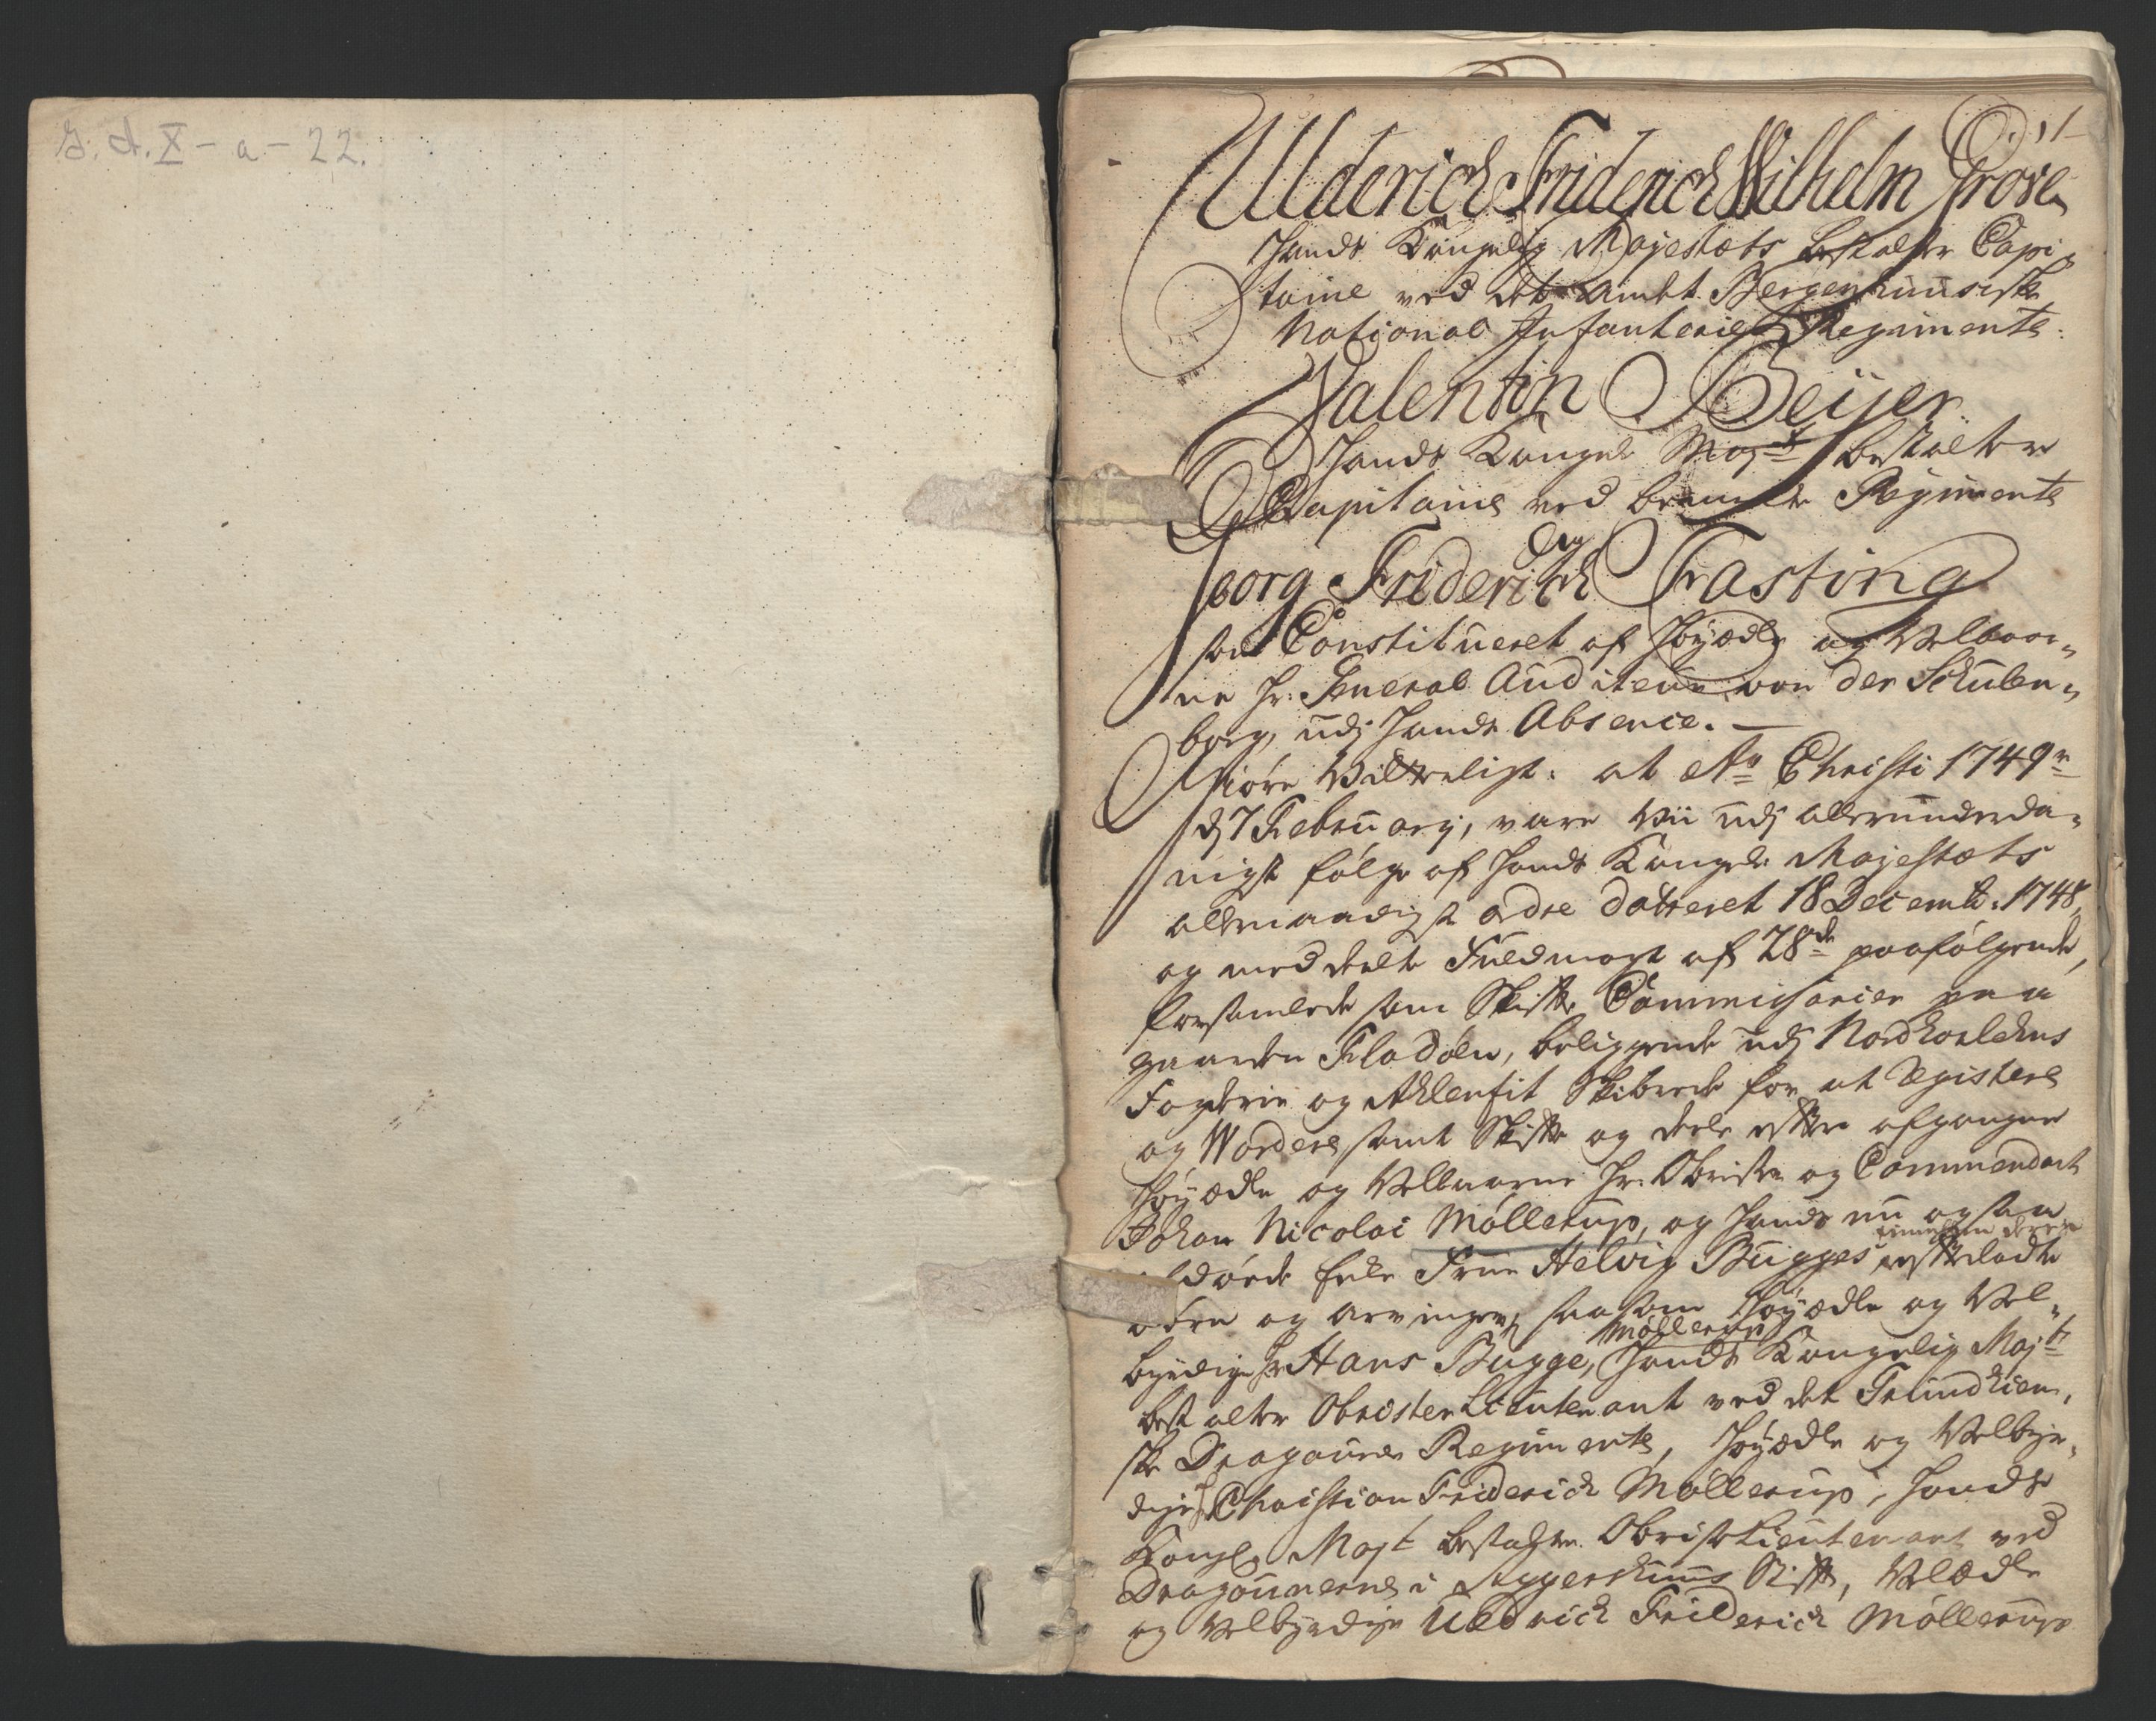 G. A. X - a - 22.
1
Ulderich Friderich Wilhelm Grøve
Hands Kongelig Mayestæts bestalter Capi„
taine ved det Andet Bergenhuusiske
National Infanterie Regimente.
Valentin Beijer
Hands Kongel: Mayt bestalter
Capitaine ved bemelte Regimente
og
Georg Friderich Fasting
som Constitueret af Høyædle og Velbaar„
ne Hr: General Auditeur von der Schulen„
borg, udj Hands Absence. —
Giøre Vitterligt: at Ao Christi 1749
d 7 Februarij, vare Vii udj allerunderda„
nigst følge af Hands Kongel: Mayestæts
allernaadigste ordre datteret 18 Decemb: 1748,
og meddeelte Fuldmagt af 28de paafølgende,
forsamlede som Skifte Commissarier paa
gaarden Fladøen, beliggende udj Nordhorlehns
Fogderie og Schibrede for at Registere
og Wordere samt Skifte og deele efter afgangne
Høyædle og Velbaarne Hr. Obriste og Commendant
Johan Nicolai Møllerup, og Hands nu ogsaa
ved døde Frue Helvig Bugges efterladte
og arvinger, saasom Høyædle og Vel„
Møllerup
byrdige Hr Hans Bugge, Hands Kongelig Mayts
bestalter Obrister Lieutenant ved det Trundhiem„
ske Dragouner Regimente, Høyædle og Velbyr„
dige Hr Christian Friderich Møllerup, Hands
Kongl. Mayt bestalter Obristlieutenant ved
Dragounerne i Aggershuus Stift, Velædle
og Velbyrdige Uldrich Friderich Møllerup